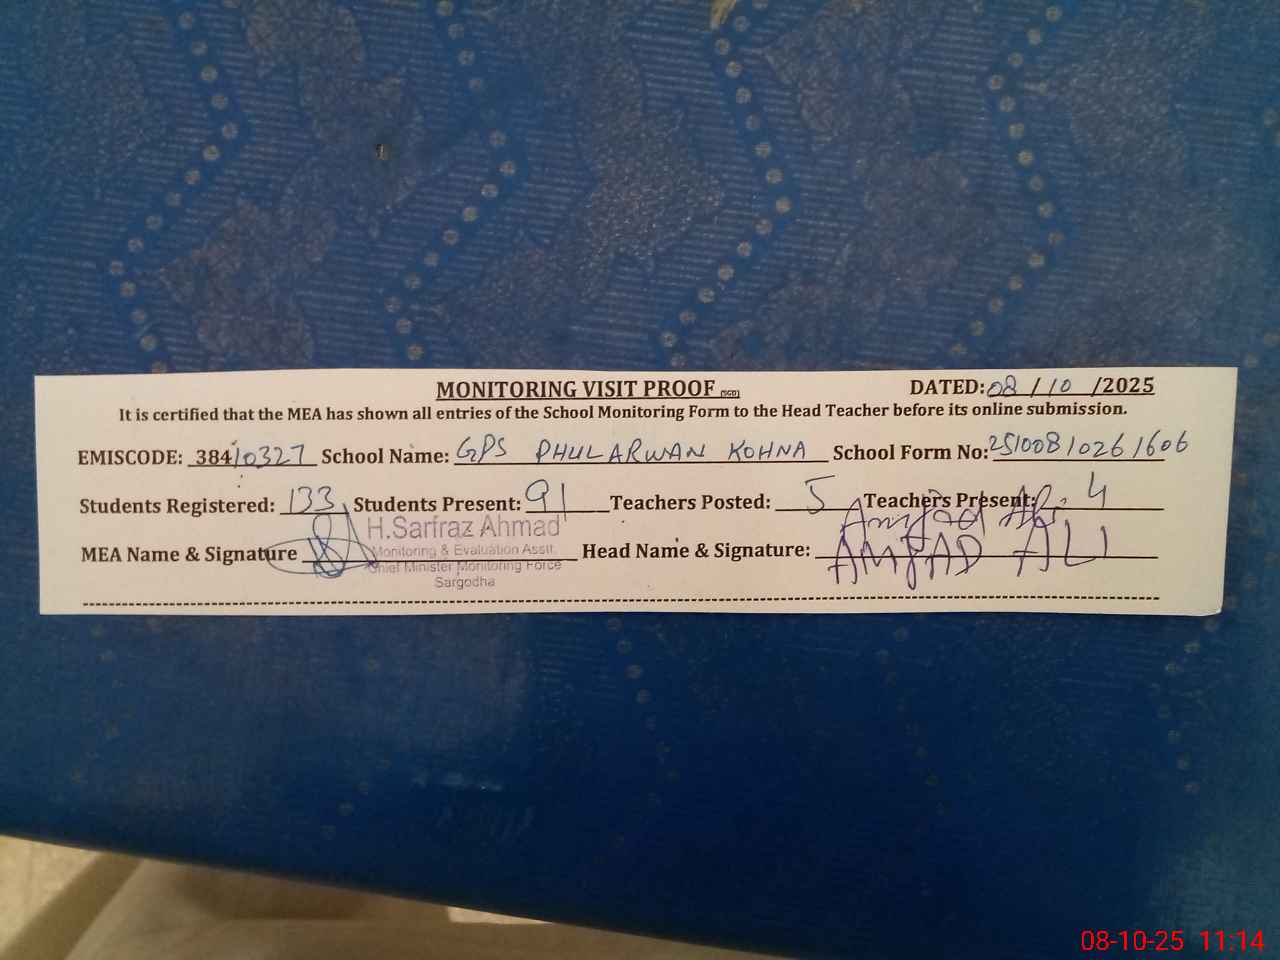 MONITORING VISIT PROOF (SGD) DATED: 08 / 10 /2025
It is certified that the MEA has shown all entries of the School Monitoring Form to the Head Teacher before its online submission.
EMISCODE: 38410327 School Name: GPS PHULARWAN KOHNA School Form No: 25100810261606
Students Registered: 133 Students Present: 91 Teachers Posted: 5 Teachers Present: 4
Amjad Ali
MEA Name & Signature H.Sarfraz Ahmad Head Name & Signature: AMJAD ALI
Monitoring & Evaluation Asstt.
Chief Minister Monitoring Force
Sargodha
08-10-25 11:14